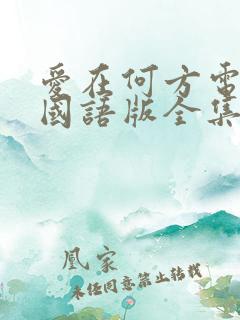 愛在何方電
國語版全集
凰家
未經同意禁止轉載